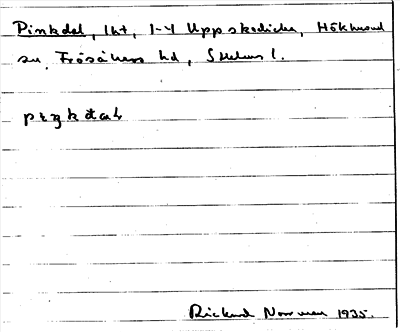 Pinkdal, lht, 1-4 Uppskedika, Hökhuvud
sn, Frösåkers hd, Sthlms l.
Rickard Norrman 1935.